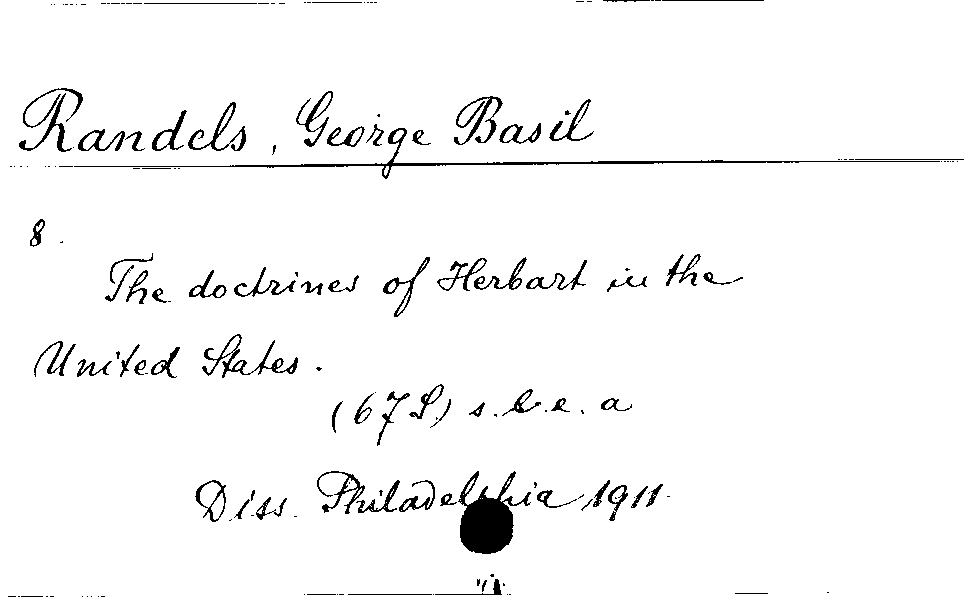 Randels, George Basil
8.
The doctrines of Herbart in the
United States.
(67 S.) s. l. e. a
Diss. Philadelphia 1911.